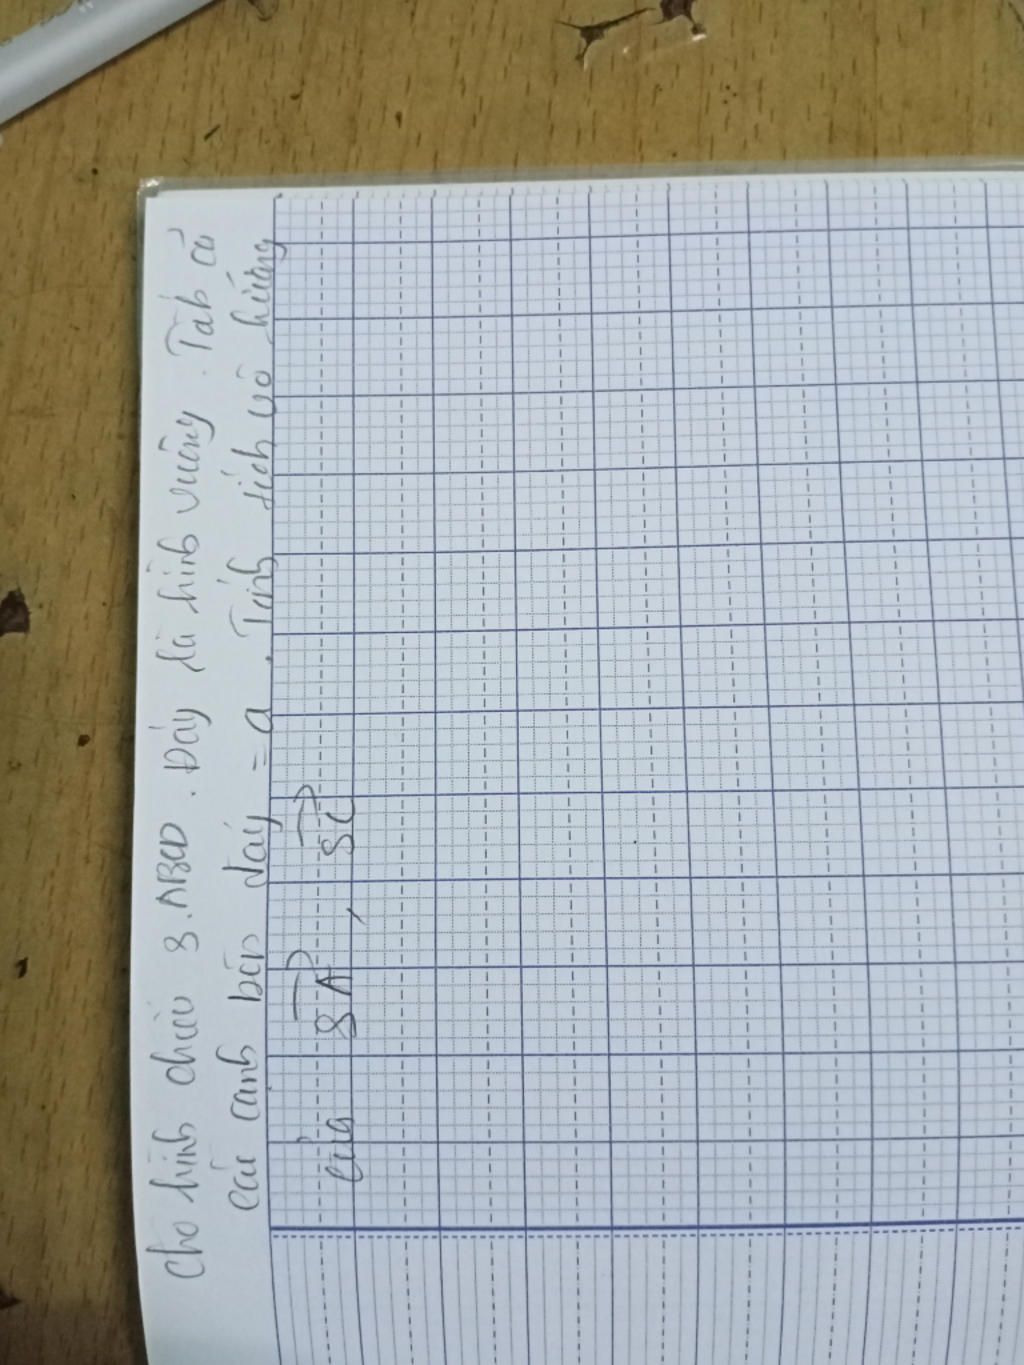 Cho hình chóp S.ABCD. Đáy là hình vuông. Tất cả
các cạnh bên đáy = a. Tính tích vô hướng
của SA→, SC→